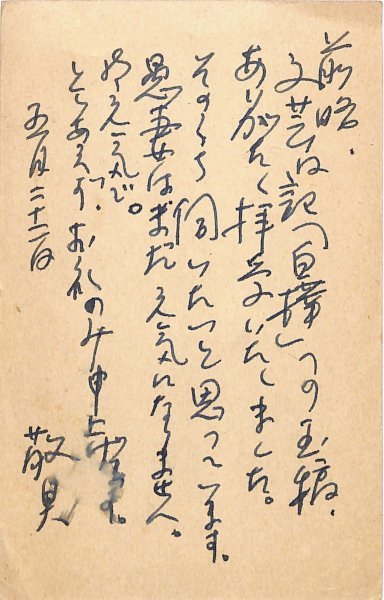 前略、
文芸日記の「白樺」の玉稿、
ありがたく拝受いたしました。
そのうち伺いたいと思っています。
愚妻はまだ元気になりません。
元気で。
とりあえず、お礼のみ申上げます。
五月二十二日